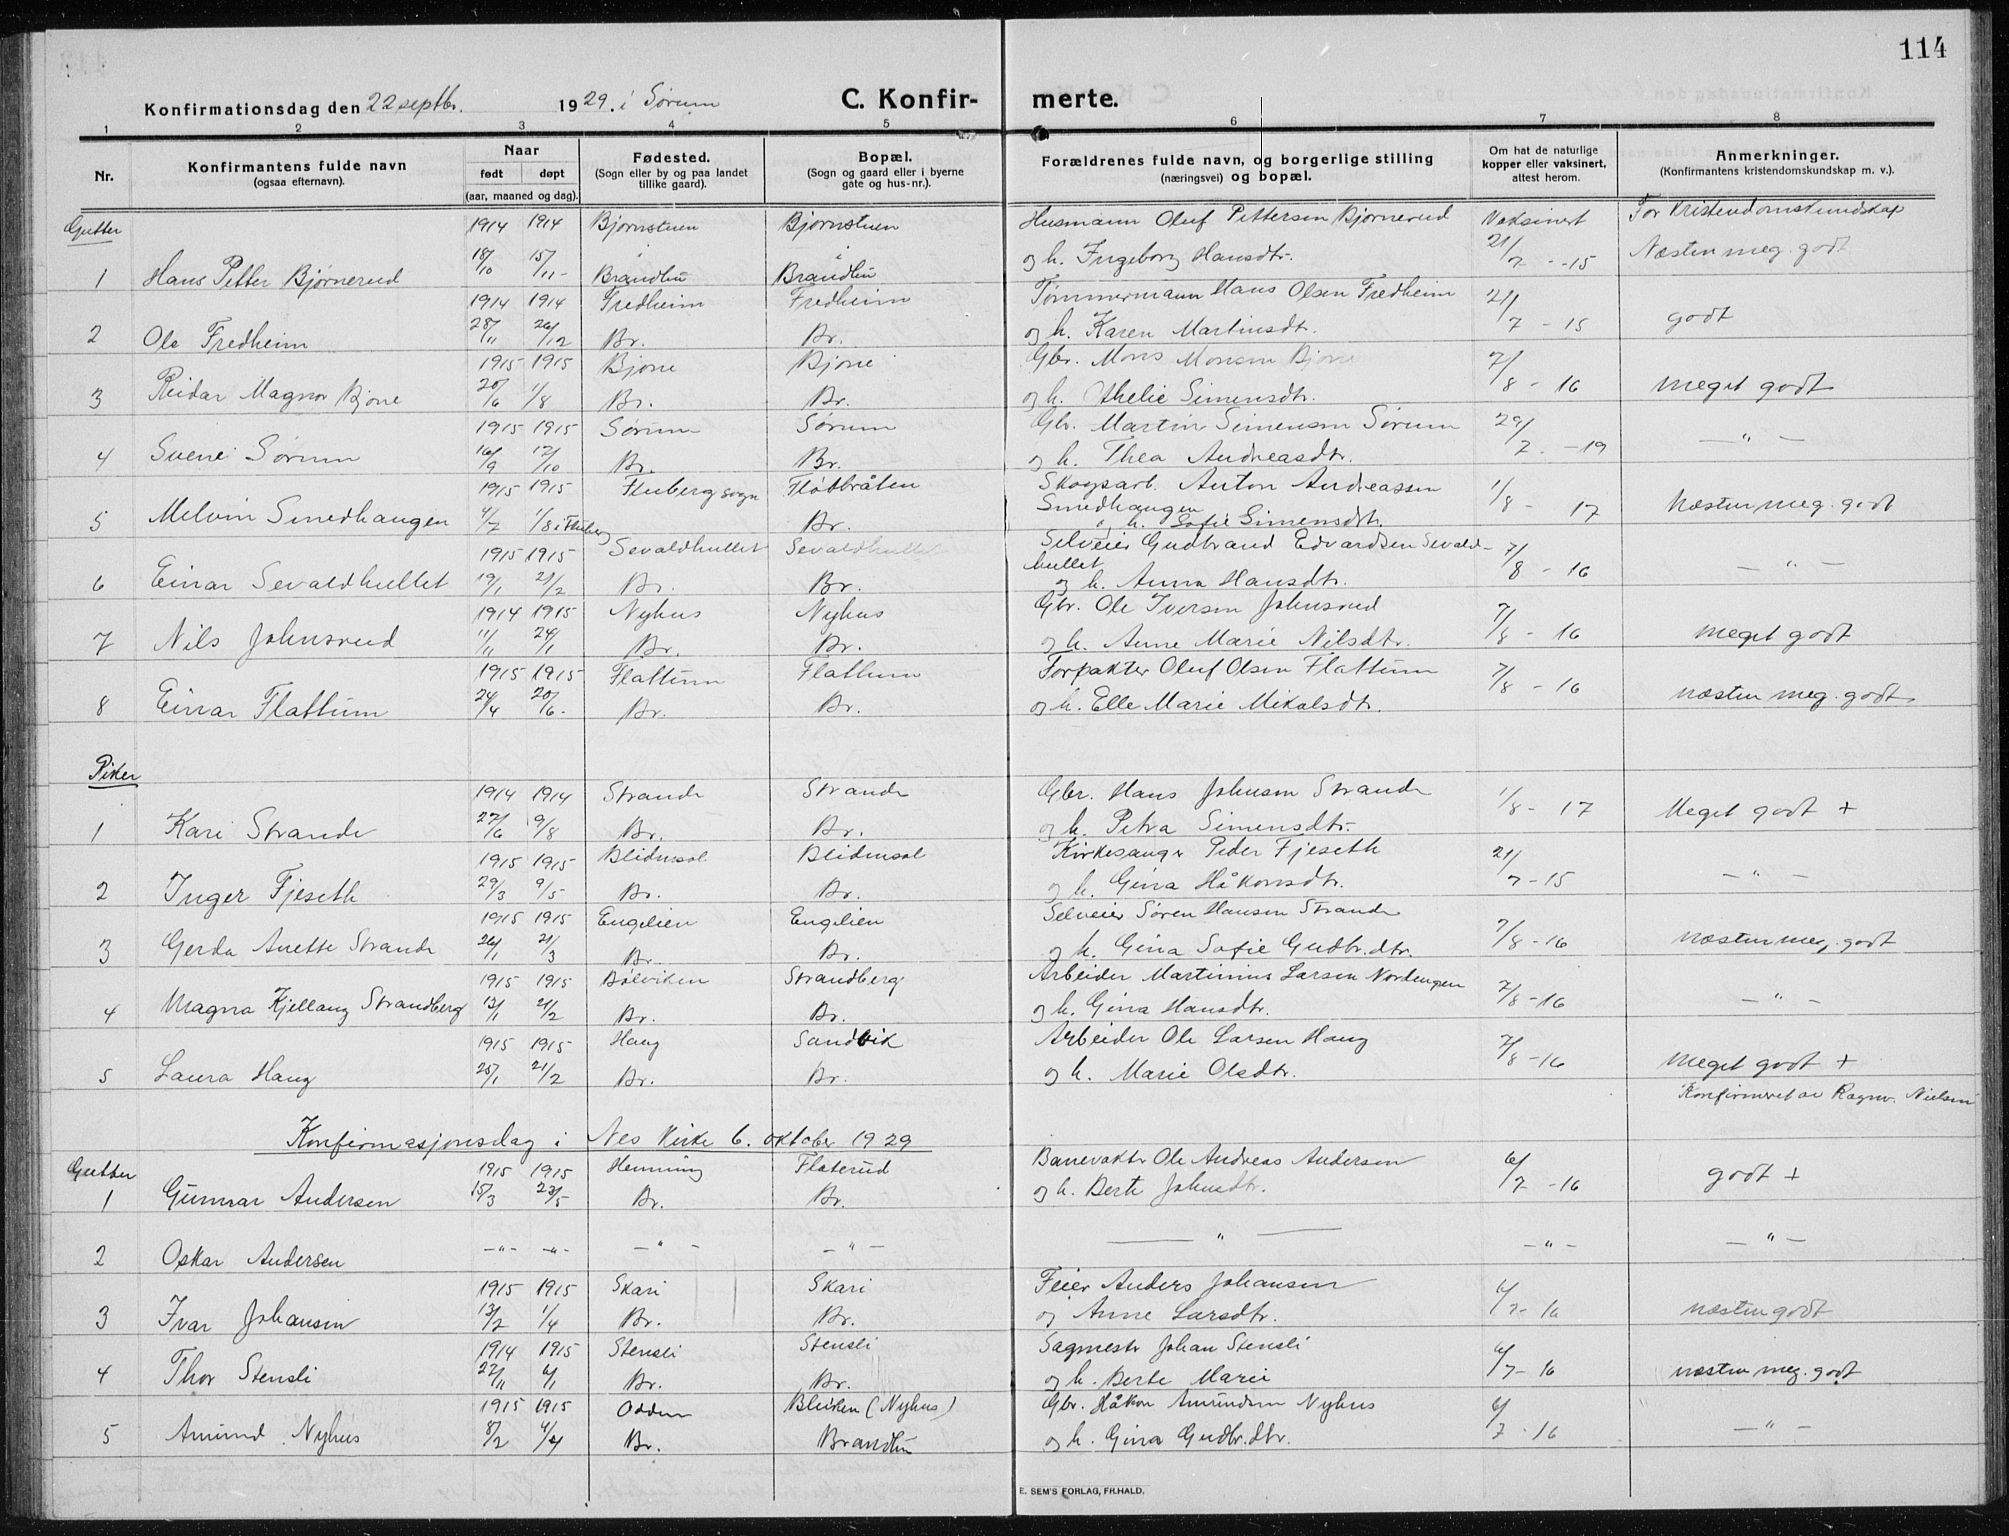 114
Konfirmationsdag den 22 septbr. 1929. i Sørum C. Konfir- merte.
1 2 3 4 5 6 7 8
Nr. Konfirmantens fulde navn (ogsaa efternavn). Naar født døpt (aar, maaned og dag). Fødested. (Sogn eller by og paa landet tillike gaard). Bopæl. (Sogn og gaard eller i byerne gate og hus-nr.). Forældrenes fulde navn, og borgerlige stilling (næringsvei) og bopæl. Om hat de naturlige kopper eller vaksinert, attest herom. Anmerkninger. (Konfirmantens kristendomskundskap m. v.).
Gutter 1914 1914 Bjørnstuen Bjørnstuen Husmann Oluf Pettersen Bjørnerud Vaksinert For Kristendomskundskap
1 Hans Petter Bjørnerud 18/10 15/11 - Brandbu Brandbu og h. Ingeborg Hansdtr. 21/7 - 15 Næsten meg. godt
1914 1914 Fredheim Fredheim Tømmermann Hans Olsen Fredheim 21/
2 Ole Fredheim 28/11 26/12 Br. Br. og h. Karen Martinsdtr. 7 - 15 godt
1915 1915 Bjone Bjone Gbr. Mons Monsen Bjone 7/
3 Reidar Magnor Bjone 20/6 1/8 Br. Br. og h. Othelie Simensdtr. 8 - 16 meget godt
1915 1915 Sørum Sørum Gbr. Martin Simensen Sørum 29/
4 Svene Sørum 16/9 17/10 Br. Br. og h. Thea Andreasdtr. 7. - 19 - " -
1915 1915 Fluberg sogn Fløtbråten Skogsarb. Anton Andreassen 1/
5 Melvin Smedhaugen 4/7 1/8 i Fluberg Br. Smedhaugen og h. Sofie Simensdtr. 8 - 17 Næsten meg. godt
1915 1915 Sevaldhullet Sevaldhullet Selveier Gudbrand Edvardsen Sevald- 7/
6 Einar Sevaldhullet 19/1 21/2 Br. Br. hullet og h. Anna Hansdtr. 8 - 16 - " -
1914 1915 Nyhus Nyhus Gbr. Ole Iversen Johnsrud 7/
7 Nils Johnsrud 11/11 24/1 Br. Br. og h. Anne Marie Nilsdtr. 8 - 16 meget godt
1915 1915 Flattum Flattum Forpakter Oluf Olsen Flattum 7/
8 Einar Flattum 24/4 20/6. Br. Br. og h. Elle Marie Mikalsdtr. 8 - 16 næsten meg. godt
Piker
1914 1914 Strande Strande Gbr. Hans Johnsen Strande 1/
1 Kari Strande 27/6 9/8 Br. Br. og h. Petra Simensdtr. 8 - 17 Meget godt +
1915 1915 Blidensol Blidensol Kirkesanger Peder Fjeseth 21/
2 Inger Fjeseth 29/3 9/5 Br. Br. og h. Gina Håkonsdtr. 7 - 15 - " -
1915 1915 Engelien Engelien Selveier Søren Hansen Strande
3 Gerda Anette Strande 26/1 21/3 Br. Br. og h. Gina Sofie Gudbr.dtr. 7/8 - 16 næsten meg. godt
1915 1915 Bølviken Strandberg Arbeider Martinius Larsen Nordengen
4 Magna Kjellaug Strandberg 13/1 21/2 Br. Br. og h. Gina Hansdtr. 7/8 - 16 - " -
1915 1915 Haug Sandvik Arbeider Ole Larsen Haug
5 Laura Haug 25/1 21/2 Br. Br. og h. Marie Olsdtr. 7/8 - 16 meget godt +
Konfirmeret av Ragnv. Nielsen
Konfirmasjonsdag i Nes Kirke 6. oktober 1929
Gutter 1915 1915 Henning Flaterud Banevokter Ole Andreas Andersen 6/
1 Gunnar Andersen 15/3 23/5 Br. Br. og h. Berte Johnsdtr. 7 - 16 godt +
2 Oskar Andersen - " - - " - - " - - " - - " - - " - - " -
1915 1915 Skari Skari Feier Anders Johansen
3 Ivar Johansen 13/2 1/4 Br. Br. og Anne Larsdtr. 6/7 - 16 næsten godt
1914 1915 Stensli Stensli Sagmestr Johan Stensli
4 Thor Stensli 22/11 6/1 Br. Br. og h. Berte Marie 6/7 - 16 næsten meg. godt
1915 1915 Odden Bleiken (Nyhus) Gbr. Håkon Amundsen Nyhus 6/
5 Amund Nyhus 8/2 4/4 Br. Brandbu og h. Gina Gudbr.dtr. 7 - 16 - " -
E. SEM'S FORLAG, FR.HALD.